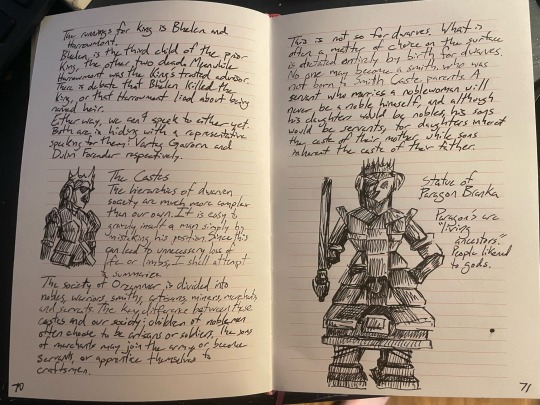 The runnings for king is Bhelen and
Harrowmont.
Bhelen is the third child of the prior
King, the other two dead. Meanwhile
Harrowmont was the King's trusted advisor.
There is debate that Bhelen killed the
King, or that Harrowmont lied about being
named heir.
Either way, we can't speak to either yet.
Both are in hiding with a representative
speaking for them: Vartag Gavorn and
Dulin Forender respectively.
The Castes
The hierarchies of dwarven
society are much more complex
than our own. It is easy to
gravely insult a man simply by
mistaking his position. Since this
can lead to unnecessary loss of
life or limbs, I shall attempt
to summarize.
The society of Orzammar is divided into
nobles, warriors, smiths, artisans, miners, merchants,
and servants. The key difference between these
castes and our society: children of noblemen
often choose to be artisans or soldiers, the sons
of merchants may join the army or become
servants, or apprentice themselves to
craftsmen.
70
This is not so for dwarves. What is
often a matter of choice on the surface
is dictated entirely by birth for dwarves.
No one may become a smith who was
not born to Smith Caste parents. A
servant who marries a noblewoman will
never be a noble himself, and although
his daughters would be nobles, his sons
would be servants, for daughters inherit
the caste of their mother, while sons
inherent the caste of their father.
Statue of
Paragon Branka
Paragons are
"living
ancestors."
People likened
to gods.
71